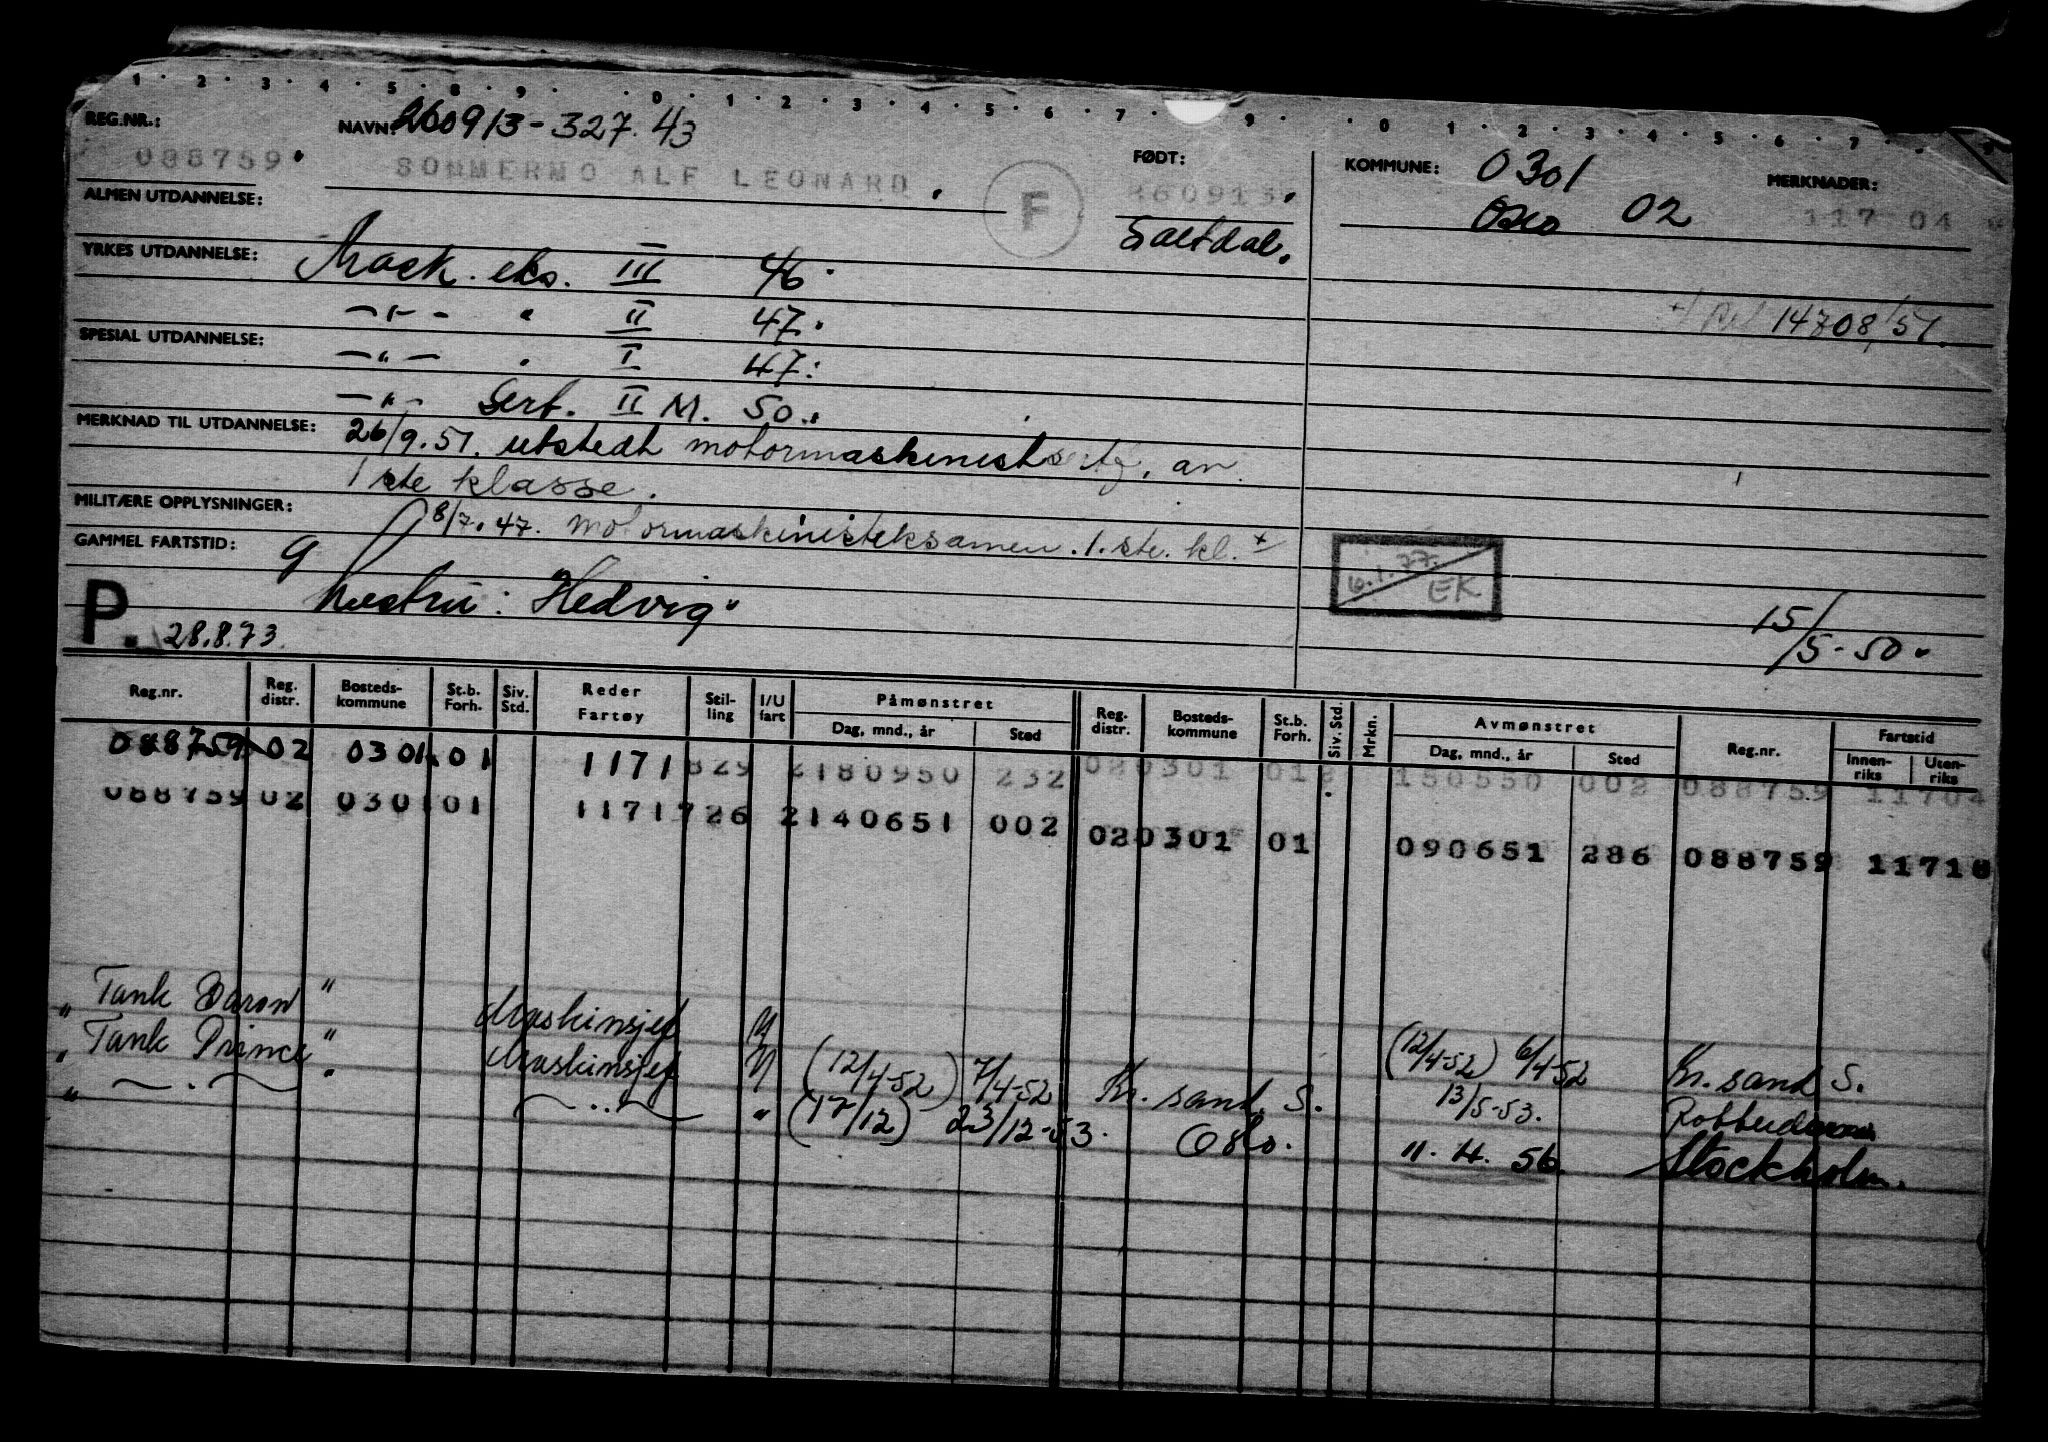 1 · 2 · 3 · 4 · 5 · 8 · 9 · · 0 · 1 · 2 · 3 · 4 · 5 · 6 · 7 · 9 · · 0 · 1 · 2 · 3 · 4 · 5 · 6 · 7 ·
REG.NR.: 088759.
NAVN: 260913-327.43
SOMMERMO ALF LEONARD.
F
FØDT:
Saltdal.
KOMMUNE: 0301
Oslo 02
MERKNADER:
117 04
ALMEN UTDANNELSE:
YRKES UTDANNELSE: Mask. eks. III 46.
—"— " II 47.
14708/51.
SPESIAL UTDANNELSE:
—"— . I 47.
—"— Sert. II M. 50.
MERKNAD TIL UTDANNELSE: 26/9.51. utstedt motormaskinistsertf. av
1ste klasse.
MILITÆRE OPPLYSNINGER:
8/7.47. motormaskinisteksamen. 1.ste. kl. +
GAMMEL FARTSTID: 9
6.1.77. EK
P. 28.8.73.
hustru: Hedvig"
15/5-50.
Reg.nr. Reg. distr. Bosteds-kommune St.b. Forh. Siv. Std. Reder Fartøy Stil-ling I/U fart Påmønstret Dag, mnd., år Sted Reg. distr. Bosteds-kommune St.b. Forh. Siv. Std. Mrkn. Avmønstret Dag, mnd., år Sted Reg.nr. Fartstid Innen-riks Uten-riks
088759 02 0301 01 1171 829 2180950 232 020301 01 150550 002 088759 11704
088759 02 0301 01 1171726 2140651 002 020301 01 090651 286 088759 11718
" Tank Baron " Maskinsjef U (12/4-52) 6/4-52 Kr. sand S.
" Tank Prince " Maskinsjef U (12/4-52) 7/4-52 Kr. sand S. 13/5-53.
" — " — " — " — " (17/12) 23/12-53. Oslo. 11. 4. 56. Stockholm.